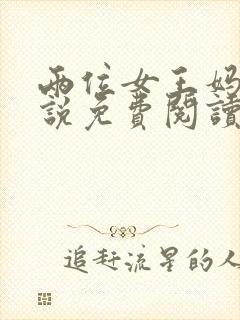 兩位女王媽
說免費閱讀
追趕流星的人